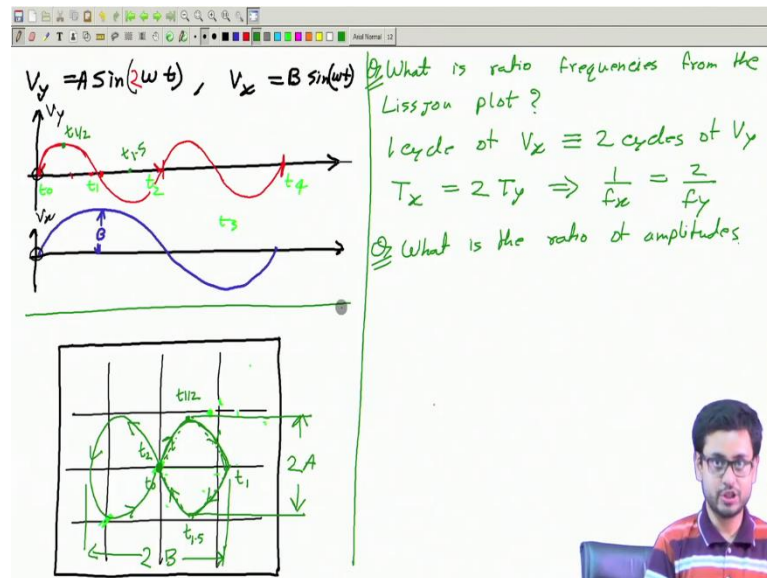 Arial Normal 12
V_y = A Sin(2ωt), V_x = B sin(ωt)
V_y
t_1/2
t_1.5
t_0 t_1 t_2 t_4
V_x
B
t_3
t_1/2
t_2
t_0 t_1 2A
t_1.5
2B
Q. What is ratio frequencies from the
Lissjou plot?
1 cycle of V_x ≡ 2 cycles of V_y
T_x = 2 T_y ⇒ 1/f_x = 2/f_y
Q. What is the ratio of amplitudes